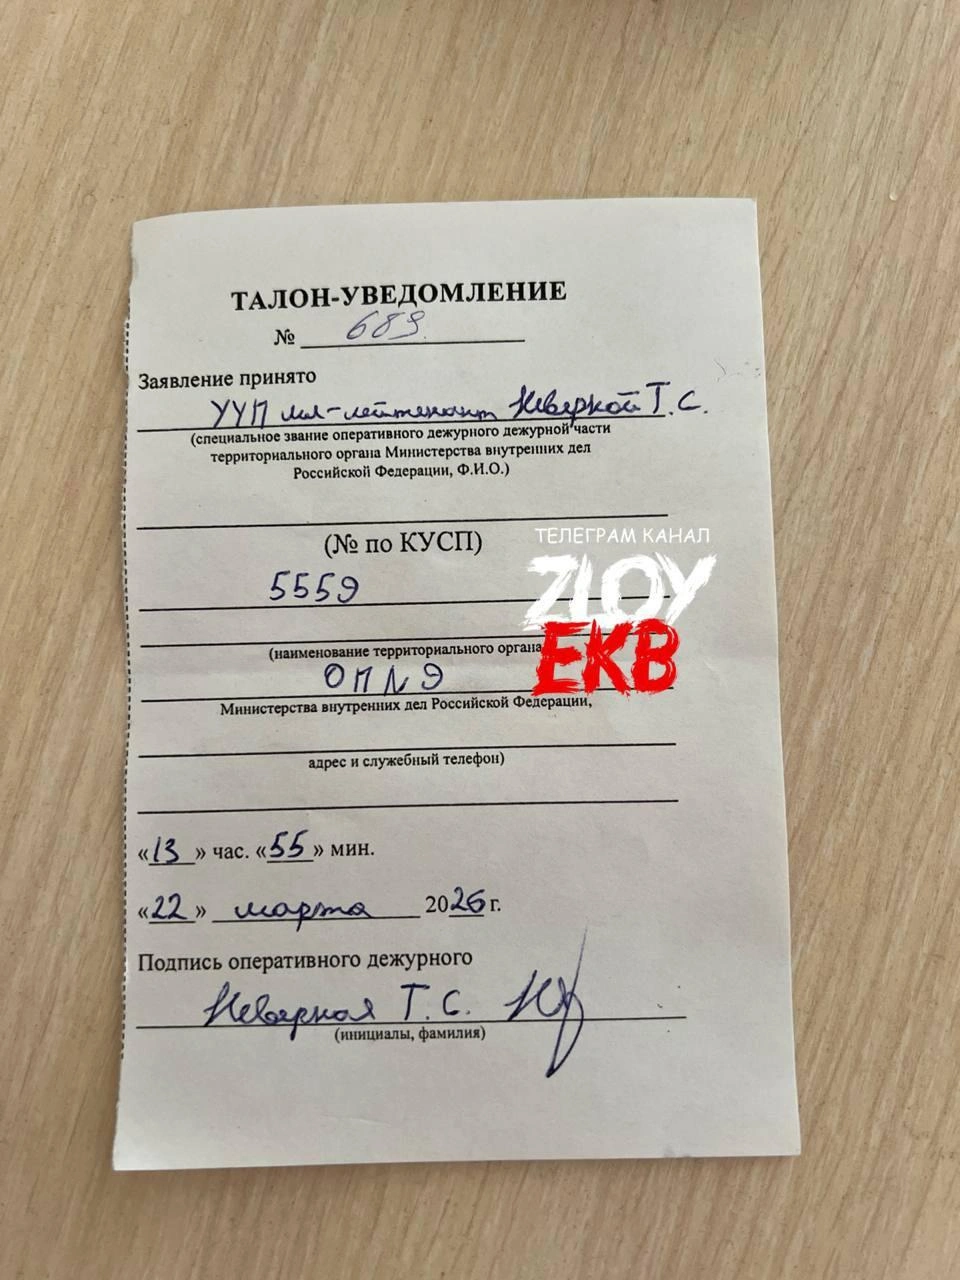 ТАЛОН-УВЕДОМЛЕНИЕ
№ 689
Заявление принято
УУП мл-лейтенант Неверкой Т.С.
(специальное звание оперативного дежурного дежурной части
территориального органа Министерства внутренних дел
Российской Федерации, Ф.И.О.)
(№ по КУСП)
5559
(наименование территориального органа
ОП №9
Министерства внутренних дел Российской Федерации,
адрес и служебный телефон)
«13» час. «55» мин.
«22» марта 2026 г.
Подпись оперативного дежурного
Неверкая Т.С.
(инициалы, фамилия)
ТЕЛЕГРАМ КАНАЛ
ZLOY
EKB